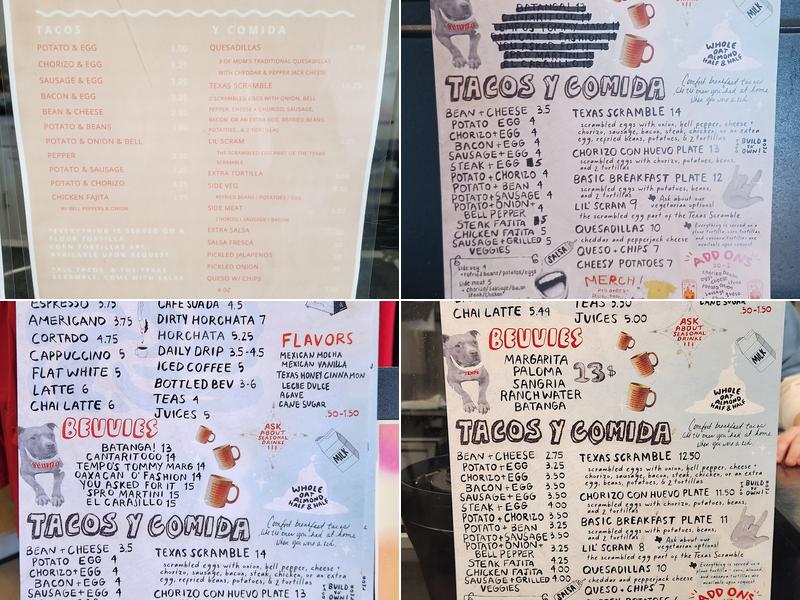 TACOS
POTATO & EGG
CHORIZO & EGG
SAUSAGE & EGG
BACON & EGG
BEAN & CHEESE
POTATO & BEANS
POTATO & ONION & BELL
PEPPER
POTATO & SAUSAGE
POTATO & CHORIZO
CHICKEN FAJITA
W/ BELL PEPPERS & ONION
*EVERYTHING IS SERVED ON A
FLOUR TORTILLA.
CORN TORTILLAS ARE
AVAILABLE UPON REQUEST
*ALL TACOS & THE TEXAS
SCRAMBLE, COME WITH SALSA
Y COMIDA
QUESADILLAS
3 OF MOM'S TRADITIONAL QUESADILLAS
WITH CHEDDAR & PEPPER JACK CHEESE
TEXAS SCRAMBLE
2 SCRAMBLED EGGS WITH ONION, BELL
PEPPER, CHEESE + CHORIZO, SAUSAGE,
BACON, OR AN EXTRA EGG, REFRIED BEANS,
POTATOES, & 2 TORTILLAS
LIL SCRAM
THE SCRAMBLED EGG PART OF THE TEXAS
SCRAMBLE
EXTRA TORTILLA
SIDE VEG
REFRIED BEANS / POTATOES / EGG
SIDE MEAT
CHORIZO / SAUSAGE / BACON
EXTRA SALSA
SALSA FRESCA
PICKLED JALAPENOS
PICKLED ONION
QUESO W/ CHIPS
4 OZ
BATANGA! 13
CANTARITOOO 14
MILK
WHOLE
OAT
ALMOND
HALF & HALF
TACOS Y COMIDA
Comfort breakfast tacos
like tu eres had at home
when you was a kid.
BEAN + CHEESE 3.5
POTATO EGG 4
CHORIZO + EGG 4
BACON + EGG 4
SAUSAGE + EGG 4
STEAK + EGG 5
POTATO + CHORIZO 4
POTATO + BEAN 4
POTATO + SAUSAGE 4
POTATO + ONION + 4
BELL PEPPER
STEAK FAJITA 5
CHICKEN FAJITA 5
SAUSAGE + GRILLED 5
VEGGIES
TEXAS SCRAMBLE 14
scrambled eggs with onion, bell pepper, cheese +
chorizo, sausage, bacon, steak, chicken, or an extra
egg, refried beans, potatoes, & 2 tortillas
CHORIZO CON HUEVO PLATE 13
scrambled eggs with chorizo, potatoes,
beans, & 2 tortillas
BUILD
YO'
OWN!
BASIC BREAKFAST PLATE 12
scrambled eggs with potatoes, beans,
and 2 tortillas
LIL' SCRAM 9
Ask about our
vegetarian options!
the scrambled egg part of the Texas Scramble
QUESADILLAS 10
cheddar and pepperjack cheese
QUESO + CHIPS 7
CHEESY POTATOES 7
SALSA
Side veg 4
refried beans/potatoes/egg
side meat 5
chorizo/sausage/bacon
steak/chicken
MERCH!
ADD ONS
ESPRESSO 3.75
AMERICANO 3.75
CORTADO 4.75
CAPPUCCINO 5
FLAT WHITE 5
LATTE 6
CHAI LATTE 6
CAFE SUADA 4.5
DIRTY HORCHATA 7
HORCHATA 5.25
DAILY DRIP 3.5-4.5
ICED COFFEE 5
BOTTLED BEV 3-6
TEAS 4
JUICES 5
FLAVORS
MEXICAN MOCHA
MEXICAN VANILLA
TEXAS HONEY CINNAMON
LECHE DULCE
AGAVE
CANE SUGAR
.50-1.50
BEVVIES
BATANGA! 13
CANTARITOOO 14
TEMPO'S TOMMY MARG 14
OAXACAN O'FASHION 14
YOU ASKED FOR IT 15
SPRO MARTINI 15
EL CARAJILLO 15
TEMPO
ASK
ABOUT
SEASONAL
DRINKS
!!!
MILK
WHOLE
OAT
ALMOND
HALF & HALF
TACOS Y COMIDA
Comfort breakfast tacos
like tu eres had at home
when you was a kid.
BEAN + CHEESE 3.5
POTATO EGG 4
CHORIZO + EGG 4
BACON + EGG 4
SAUSAGE + EGG 4
TEXAS SCRAMBLE 14
scrambled eggs with onion, bell pepper, cheese +
chorizo, sausage, bacon, steak, chicken, or an extra
egg, refried beans, potatoes, & 2 tortillas
CHORIZO CON HUEVO PLATE 13
BUILD
YO'
OWN!
CHAI LATTE 5.49
TEAS 3.50
JUICES 5.00
CANE SUGAR
.50-1.50
BEVVIES
MARGARITA
PALOMA
SANGRIA
RANCH WATER
BATANGA
13$
TEMPO
ASK
ABOUT
SEASONAL
DRINKS
!!!
MILK
WHOLE
OAT
ALMOND
HALF & HALF
TACOS Y COMIDA
Comfort breakfast tacos
like tu eres had at home
when you was a kid.
BEAN + CHEESE 2.75
POTATO + EGG 3.25
CHORIZO + EGG 3.50
BACON + EGG 3.50
SAUSAGE + EGG 3.50
STEAK + EGG 4.00
POTATO + CHORIZO 3.50
POTATO + BEAN 3.25
POTATO + SAUSAGE 3.50
POTATO + ONION + 3.25
BELL PEPPER
STEAK FAJITA 4.25
CHICKEN FAJITA 4.00
SAUSAGE + GRILLED 4.00
VEGGIES
TEXAS SCRAMBLE 12.50
scrambled eggs with onion, bell pepper, cheese +
chorizo, sausage, bacon, steak, chicken, or an extra
egg, beans, potatoes, & 2 tortillas
CHORIZO CON HUEVO PLATE 11.50
scrambled eggs with chorizo, potatoes,
beans, & 2 tortillas
BUILD
YO'
OWN!
BASIC BREAKFAST PLATE 11
scrambled eggs with potatoes, beans,
and 2 tortillas
LIL' SCRAM 8
Ask about our
vegetarian options!
the scrambled egg part of the Texas Scramble
QUESADILLAS 10
cheddar and pepperjack cheese
QUESO + CHIPS 7
SALSA
ADD ONS